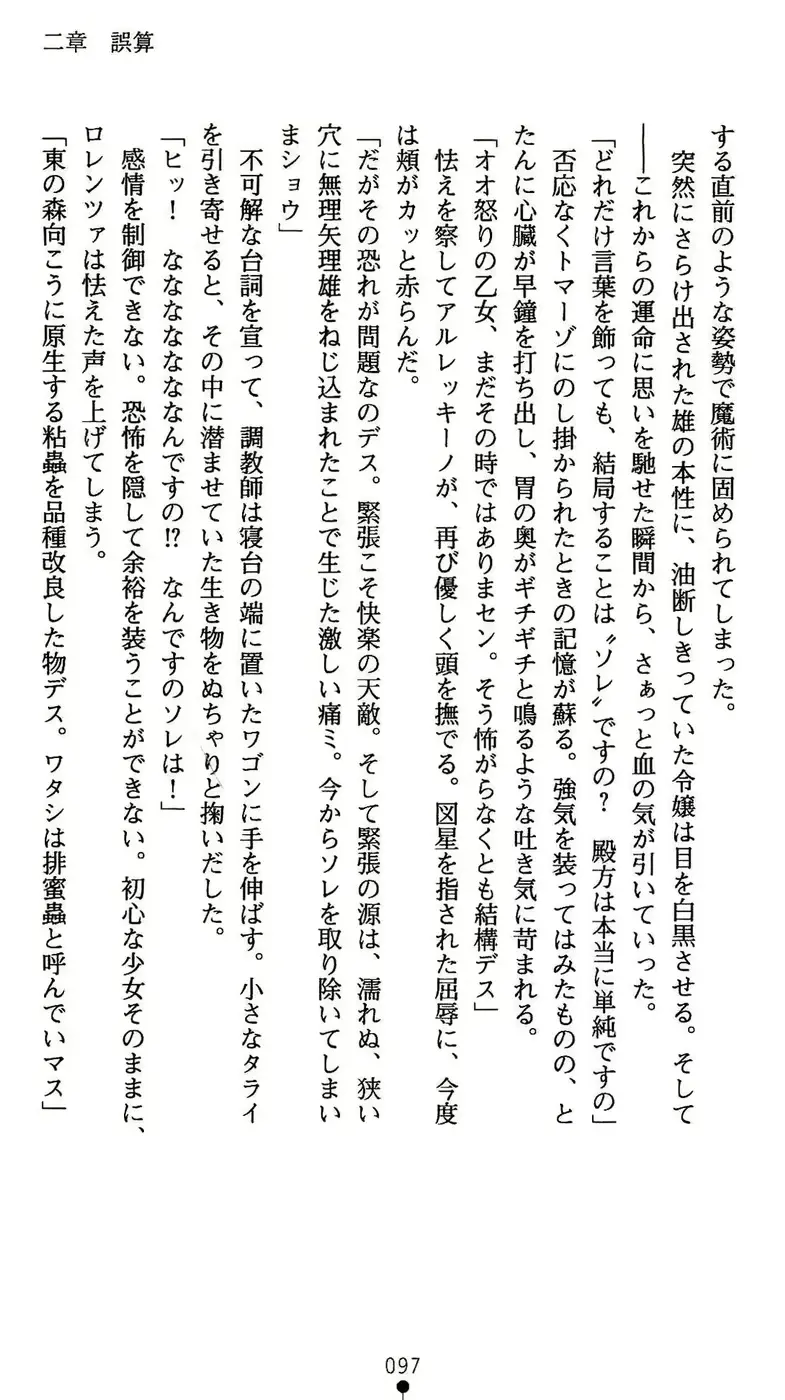 二章　誤算
する直前のような姿勢で魔術に固められてしまった。
　突然にさらけ出された雄の本性に、油断しきっていた令嬢は目を白黒させる。そして
――これからの運命に思いを馳せた瞬間から、さぁっと血の気が引いていった。
「どれだけ言葉を飾っても、結局することは〝ソレ〟ですの？　殿方は本当に単純ですの」
　否応なくトマーゾにのし掛かられたときの記憶が蘇る。強気を装ってはみたものの、と
たんに心臓が早鐘を打ち出し、胃の奥がギチギチと鳴るような吐き気に苛まれる。
「オオ怒りの乙女、まだその時ではありまセン。そう怖がらなくとも結構デス」
　怯えを察してアルレッキーノが、再び優しく頭を撫でる。図星を指された屈辱に、今度
は頬がカッと赤らんだ。
「だがその恐れが問題なのデス。緊張こそ快楽の天敵。そして緊張の源は、濡れぬ、狭い
穴に無理矢理雄をねじ込まれたことで生じた激しい痛ミ。今からソレを取り除いてしまい
まショウ」
　不可解な台詞を宣って、調教師は寝台の端に置いたワゴンに手を伸ばす。小さなタライ
を引き寄せると、その中に潜ませていた生き物をぬちゃりと掬いだした。
「ヒッ！　なななななななんですの!?　なんですのソレは！」
　感情を制御できない。恐怖を隠して余裕を装うことができない。初心な少女そのままに、
ロレンツァは怯えた声を上げてしまう。
「東の森向こうに原生する粘蟲を品種改良した物デス。ワタシは排蜜蟲と呼んでいマス」
097